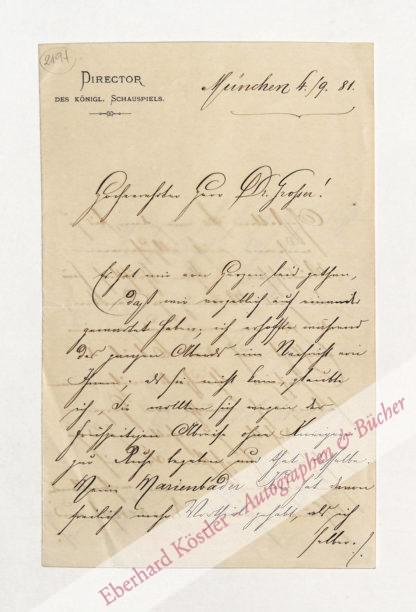 219/
DIRECTOR
DES KÖNIGL. SCHAUSPIELS.
München 4./9. 81.
Hochverehrter Herr Dr. Grosser!
Es hat mir von Herzen leid gethan,
daß wir vergeblich auf einander
gewartet haben; ich erhoffte während
des ganzen Abends eine Nachricht von
Ihnen; als sie nicht kam, glaubte
ich, Sie wollten sich wegen der
frühzeitigen Abreise ohne Kneiperei
zur Ruhe begeben und
Mein Marienbader hat davon
freilich mehr Vortheil gehabt, als ich
selber.
Eberhard Köstler - Autographen & Bücher